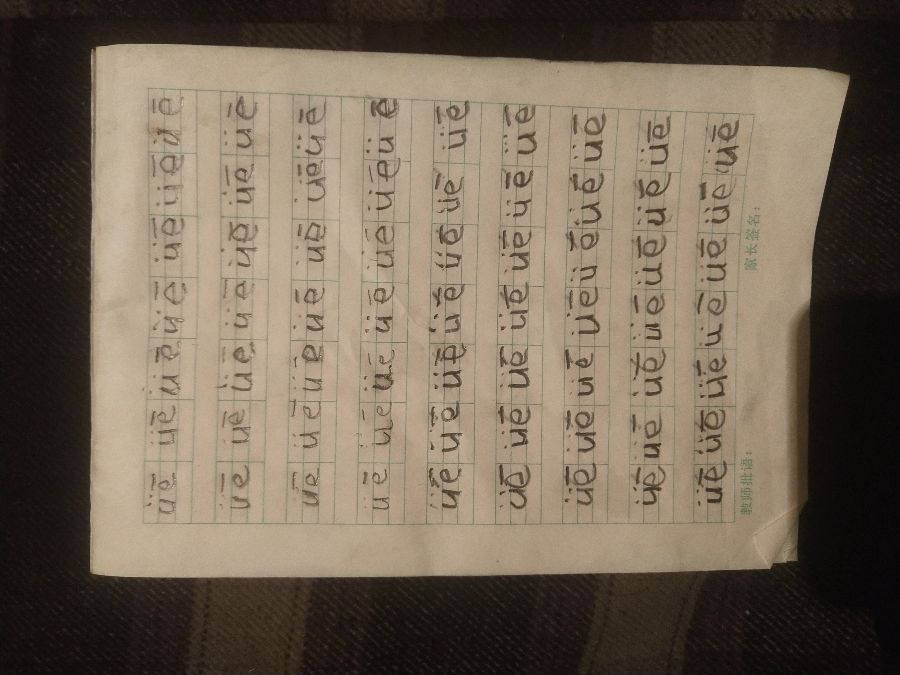 üē üē üē üē üē üē üē
üē üē üē üē üē üē üē
üē üē üē üē üē üē üē
üē üē üē üē üē üē üē
üē üē üē üē üē üē üē
üē üē üē üē üē üē üē
üē üē üē üē üē üē üē
üē üē üē üē üē üē üē
üē üē üē üē üē üē üē
教师批语： 家长签名：